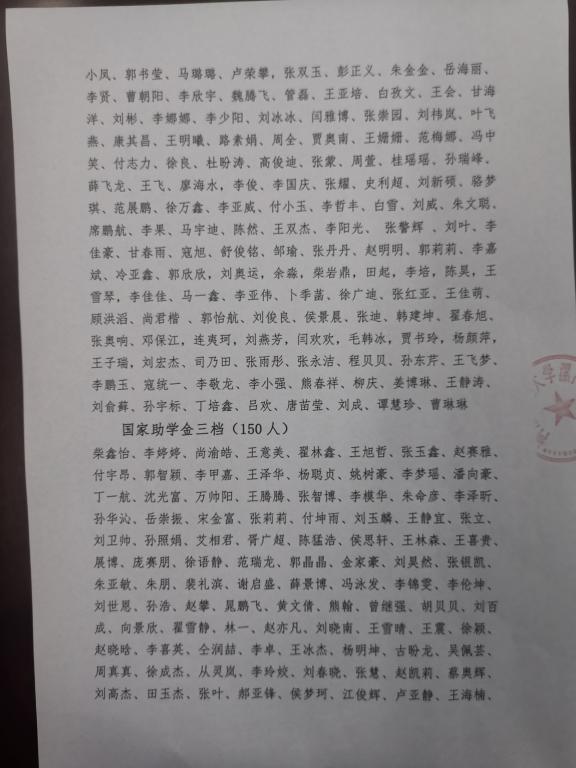 小凤、郭书莹、马璐璐、卢荣攀，张双玉、彭正义、朱金金、岳海丽、
李贤、曹朝阳、李欣宇、魏腾飞、管磊、王亚培、白孜文、王会、甘海
洋、刘彬、李娜娜、李少阳、刘冰冰、闫雅博、张崇园、刘祎岚、叶飞
燕、康其昌、王明曦、路素娟、周全、贾奥南、王姗姗、范梅娜、冯中
笑、付志力、徐良、杜盼涛、高俊迪、张蒙、周萱、桂瑶瑶、孙瑞峰、
薛飞龙、王飞、廖海水，李俊、李国庆、张耀、史利超、刘新硕、骆梦
琪、范展鹏、徐万鑫、李亚威、付小玉、李哲丰、白雪、刘威、朱文聪、
席鹏航、李果、马宇迪、陈然、王双杰、李阳光、 张警辉 、刘叶、李
佳豪、甘春雨、寇旭、舒俊铭、邹瑜、张丹丹、赵明明、郭莉莉、李嘉
斌、冷亚鑫、郭欣欣，刘奥运，余淼，柴岩鼎，田起，李培，陈昊，王
雪琴，李佳佳、马一鑫、李亚伟、卜季菡、徐广迪、张红亚、王佳萌、
顾洪滔、尚君楷 、郭怡航、刘俊良、侯景晨、张迪、韩建坤、翟春旭、
张奥响、邓保江，连爽珂，刘燕芳，闫欢欢，毛韩冰，贾书玲，杨颜萍，
王子瑞，刘宏杰、司乃田、张雨彤、张永洁、程贝贝、孙东芹、王飞梦、
李鹏玉、寇统一、李敬龙、李小强、熊春祥、柳庆、姜博琳、王静涛、
刘俞藓、孙宇标、丁培鑫、吕欢、唐苗莹、刘成、谭慧珍、曹琳琳
国家助学金三档（150 人）
柴鑫怡、李婷婷、尚渝皓、王薏美、翟林鑫、王旭哲、张玉鑫、赵赛雅、
付宇昂、郭智颖、李甲嘉、王泽华、杨聪贞、姚树豪、李梦瑶、潘向豪、
丁一航、沈光富、万帅阳、王腾腾、张智博、李模华、朱命彦、李泽昕、
孙华沁、岳崇振、宋金富、张莉莉、付坤雨、刘玉麟、王静宜、张立、
刘卫帅、孙照娟、艾相君、胥广超、陈猛浩、侯思轩、王林森、王喜贵、
展博、庞赛朋、徐语静、范瑞龙、郭晶晶、金家豪、刘昊然、张银凯、
朱亚敏、朱朋、裴礼滨、谢启盛、薛景博、冯泳发、李锦雯、李伦坤、
刘世恩、孙浩、赵攀、晁鹏飞、黄文倩、熊翰、曾继强、胡贝贝、刘百
成、向景欣、翟雪静、林一、赵亦凡、刘晓南、王雪晴、王震、徐颖、
赵晓晗、李喜英、仝润喆、李卓、王冰杰、杨明坤、古盼龙、吴佩芸、
周真真、徐成杰、从灵岚、李玲姣、刘春晓、张慧、赵凯莉、蔡奥辉、
刘高杰、田玉杰、张叶、郝亚锋、侯梦珂、江俊辉、卢亚静、王海楠、